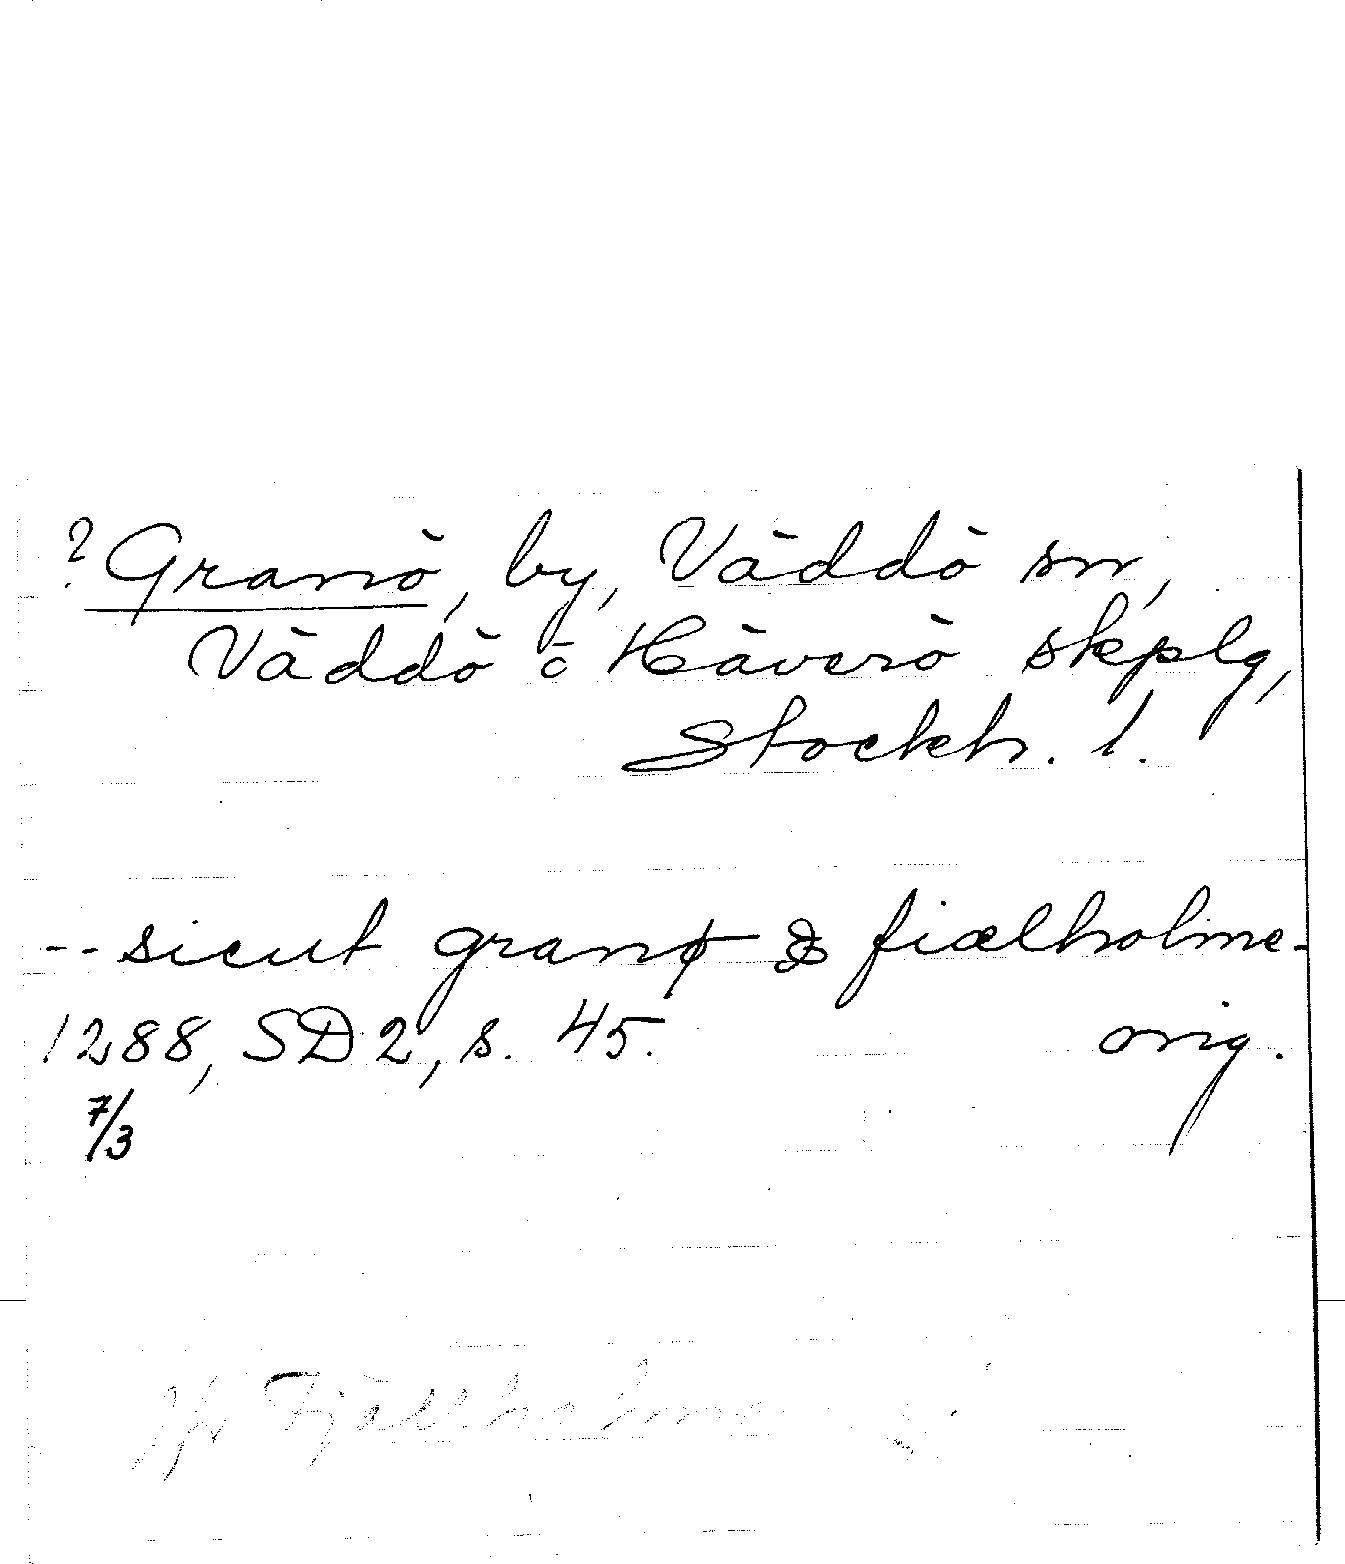 ? Granö, by, Väddö sn,
Väddö o Häverö skplg,
Stockh. l.
-- sicut granø & fiælholme-
1288, SD 2, s. 45. orig.
7/3
Jfr Fjällholmen